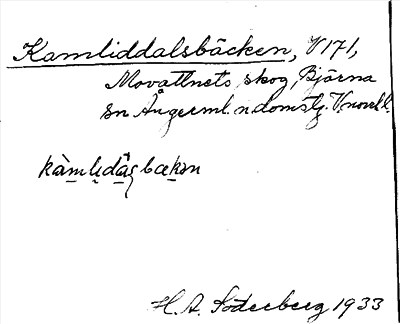 Kamliddalsbäcken, V171,
Movattnets skog, Björna
sn Ångerml. n domstg. V.norrl l.
kàmlịdạ̊ṣbækn
H. A. Söderberg 1933